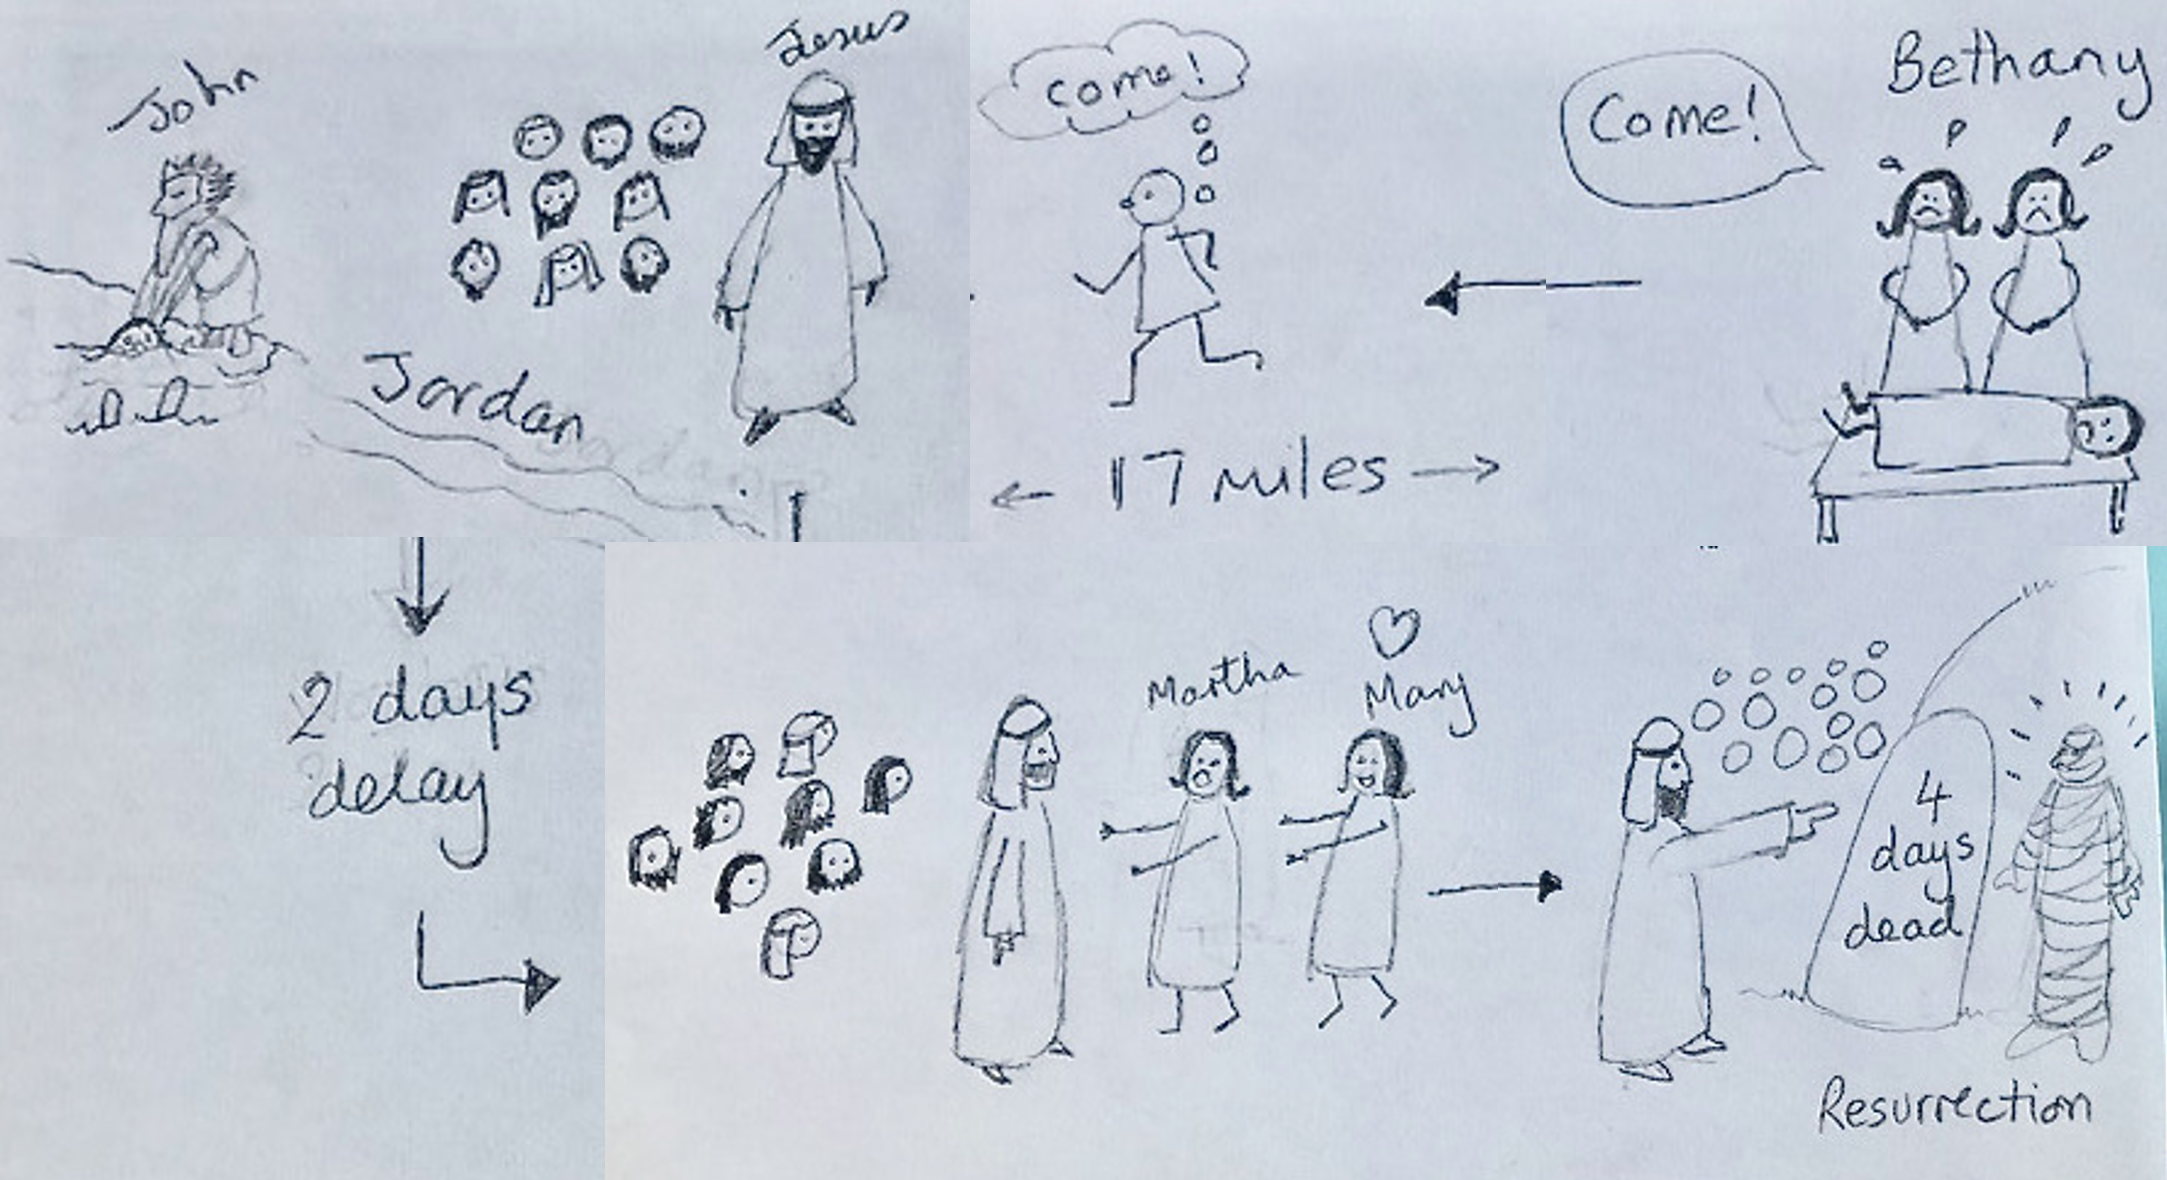 John
Jesus
come!
Come!
Bethany
Jordan
← 17 miles →
2 days
delay
Martha
Mary
4
days
dead
Resurrection